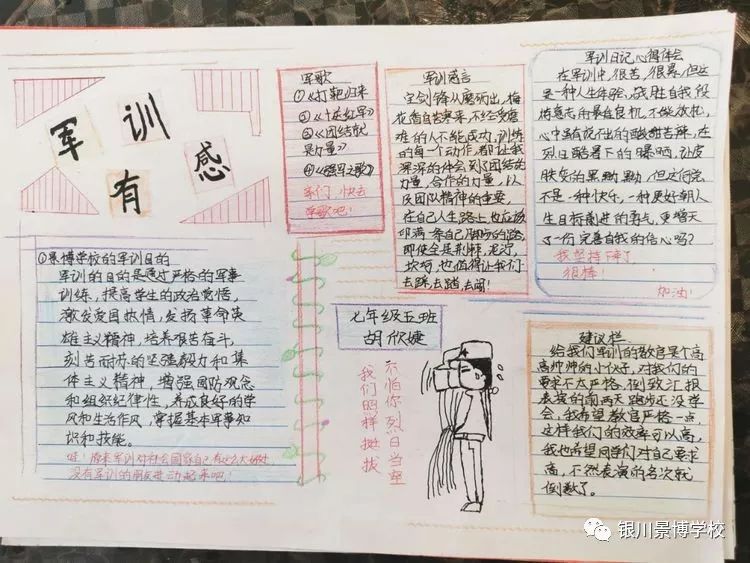 军训
有感
①景博学校的军训目的
军训的目的是通过严格的军事
训练，提高学生的政治觉悟，
激发爱国热情，发扬革命英
雄主义精神，培养艰苦奋斗，
刻苦耐劳的坚强毅力和集
体主义精神，增强国防观念
和组织纪律性，养成良好的学
风和生活作风，掌握基本军事知
识和技能。
哇！原来军训对社会国家自己有这么大好处
没有军训的朋友进动起来吧！
军歌
①《打靶归来
②《十送红军》
③《团结就
是力量》
④《强军之歌》
快去
学歌吧！
军训感言
宝剑锋从磨砺出，梅
花香自苦寒来，不经受磨
难的人不能成功，训练
的每一个动作，都让我
深深的体会到了团结的
力量，合作的力量，以
及团队精神的重要，
在自己人生路上，也应该
印满一条自己脚步的路，
即使全是荆棘，泥泞，
坎坷，也值得让我们
去踩，去踏，去闯！
军训日记心得体会
在军训中，很苦，很累，但这
是一种人生体验，战胜自我，锻
炼意志的最佳良机，不做放松，
心中虽有说不出的酸甜苦辣，在
烈日酷暑下的曝晒，让皮
肤变的黑黝黝，但这何尝
不是一种快乐，一种更好朝人
生目标前进的勇气，更增添
了一份完善自我的信心吗？
我坚持下来了，
很棒！
加油！
七年级五班
胡欣婕
不怕你烈日当空
我们照样挺拔
建议栏
给我们军训的教官是个高
高帅帅的小伙子，对我们的
要求不太严格，倒致汇报
表演的前两天跑步还没学
会，我希望教官严格一点，
这样我们的效率可以高，
我也希望同学们对自己要求
高，不然表演的名次就
倒数了。
银川景博学校